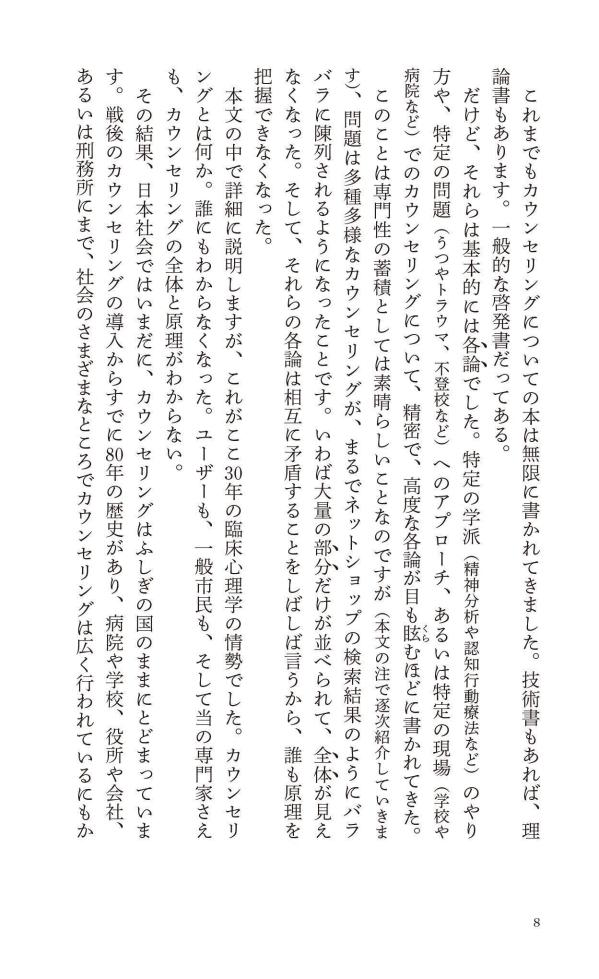 これまでもカウンセリングについての本は無限に書かれてきました。技術書もあれば、理
論書もあります。一般的な啓発書だってある。
だけど、それらは基本的には各論でした。特定の学派（精神分析や認知行動療法など）のやり
方や、特定の問題（うつやトラウマ、不登校など）へのアプローチ、あるいは特定の現場（学校や
病院など）でのカウンセリングについて、精密で、高度な各論が目も眩むほどに書かれてきた。
くら
このことは専門性の蓄積としては素晴らしいことなのですが（本文の注で逐次紹介していきま
す）、問題は多種多様なカウンセリングが、まるでネットショップの検索結果のようにバラ
バラに陳列されるようになったことです。いわば大量の部分だけが並べられて、全体が見え
なくなった。そして、それらの各論は相互に矛盾することをしばしば言うから、誰も原理を
把握できなくなった。
本文の中で詳細に説明しますが、これがここ30年の臨床心理学の情勢でした。カウンセリ
ングとは何か。誰にもわからなくなった。ユーザーも、一般市民も、そして当の専門家さえ
も、カウンセリングの全体と原理がわからない。
その結果、日本社会ではいまだに、カウンセリングはふしぎの国のままにとどまっていま
す。戦後のカウンセリングの導入からすでに80年の歴史があり、病院や学校、役所や会社、
あるいは刑務所にまで、社会のさまざまなところでカウンセリングは広く行われているにもか
8